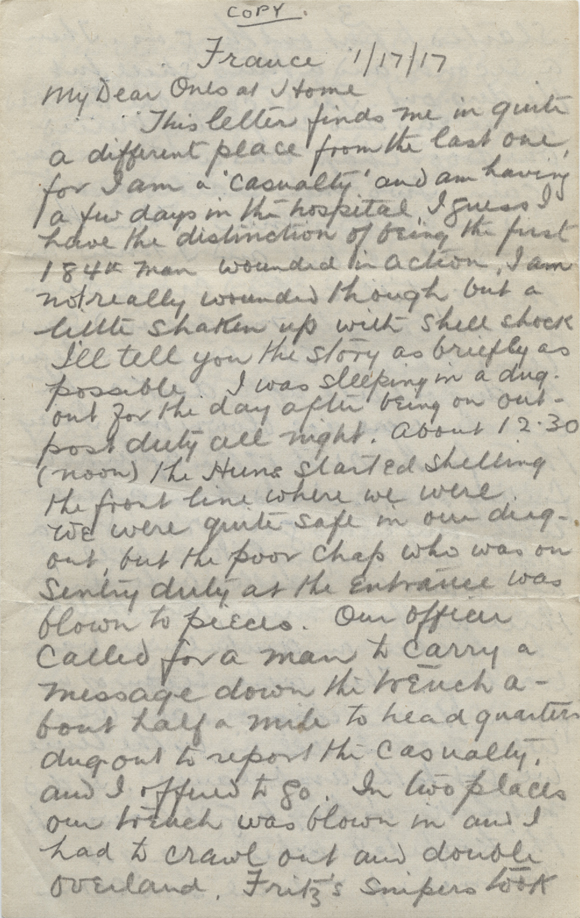 COPY.
France 1/17/17
My Dear Ones at Home
This letter finds me in quite
a different place from the last one,
for I am a "casualty" and am having
a few days in the hospital. I guess I
have the distinction of being the first
184th man wounded in action. I am
not really wounded though but a
little shaken up with shell shock
I'll tell you the story as briefly as
possible. I was sleeping in a dug-
out for the day after being on out-
post duty all night. About 12.30
(noon) the Huns started shelling
the front line where we were.
We were quite safe in our dug-
out, but the poor chap who was on
Sentry duty at the entrance was
blown to pieces. Our officer
called for a man to carry a
message down the trench a-
bout half a mile to headquarters
dug-out to report the casualty,
and I offered to go. In two places
our trench was blown in and I
had to crawl out and double
overland. Fritz's snipers took